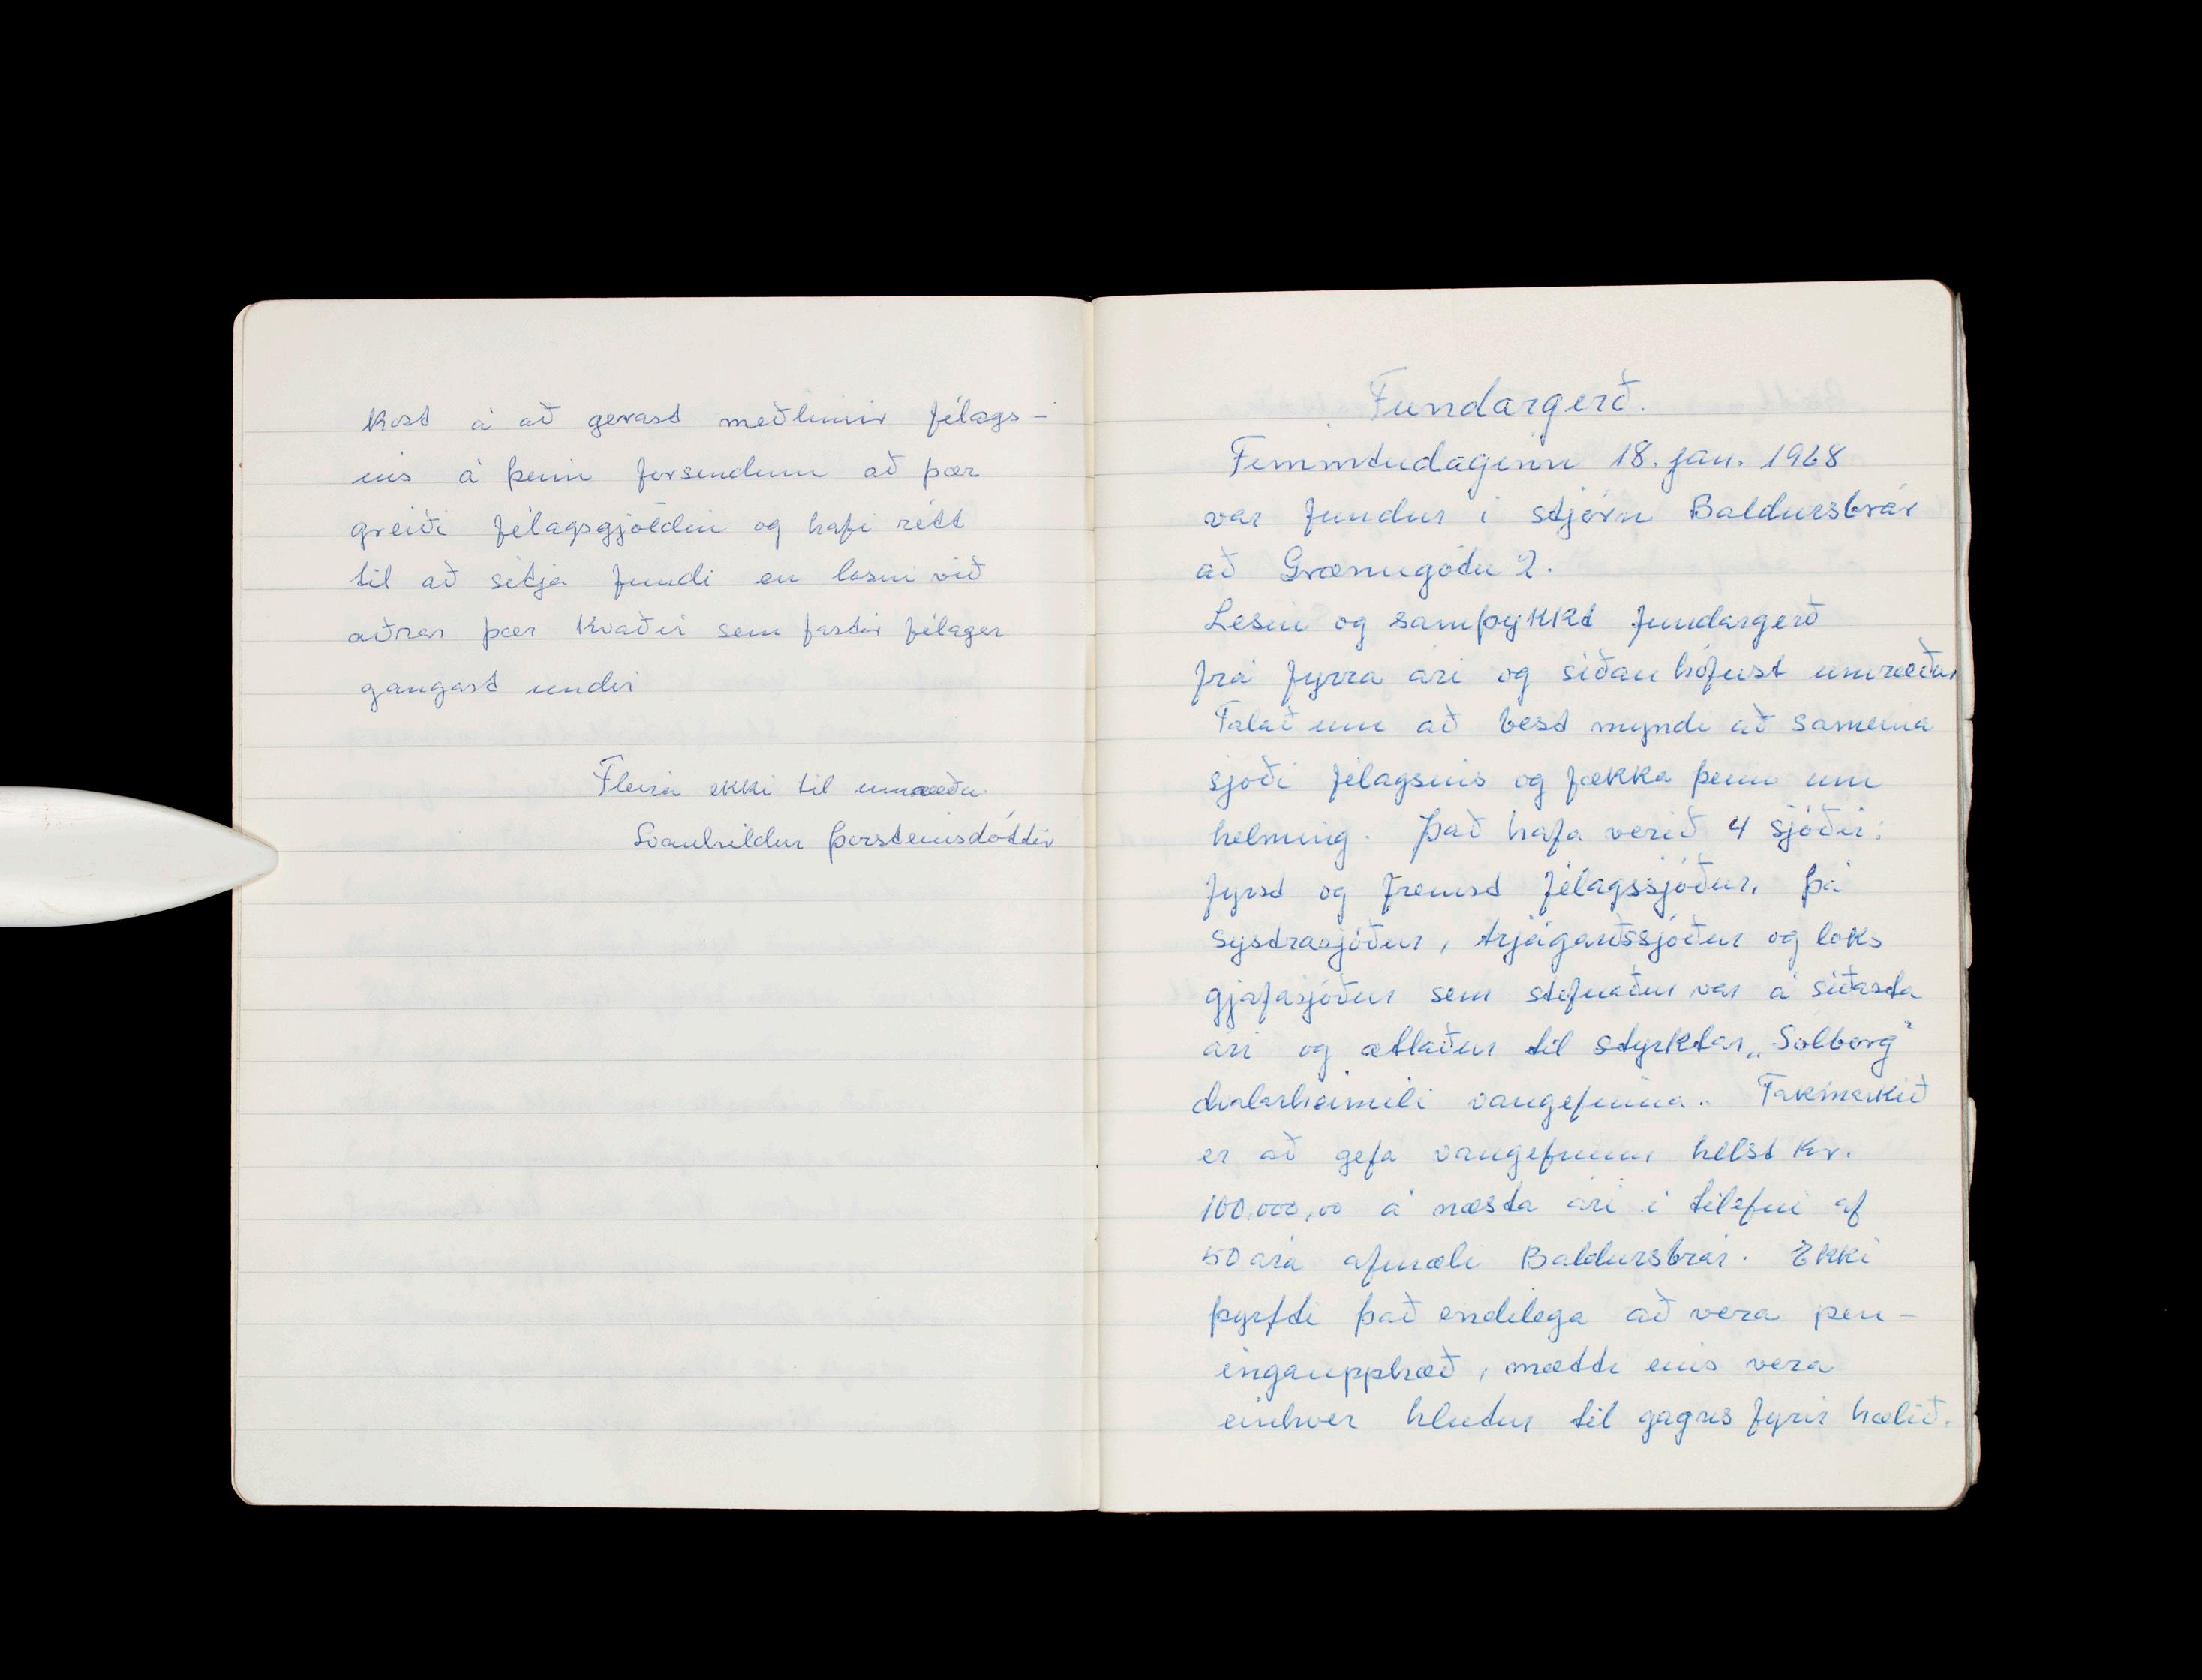 kost á að gerast meðlimir félags-
ins á þeim forsendum að þær
greiði félagsgjöldin og hafi rétt
til að sitja fundi en losni við
aðrar þær kvaðir sem fastir félagar
gangast undir
Fleira ekki til umræðu.
Svanhildur Þorsteinsdóttir
Fundargerð.
Fimmtudaginn 18. jan. 1968
var fundur í stjórn Baldursbrár
að Grænugötu 2.
Lesin og samþykkt fundargerð
frá fyrra ári og síðan hófust umræður
Talað um að best myndi að sameina
sjóði félagsins og fækka þeim um
helming. Það hafa verið 4 sjóðir:
fyrst og fremst félagssjóður, þá
systrasjóður, trjágarðssjóður og loks
gjafasjóður sem stofnaður var á síðasta
ári og ætlaður til styrktar „Sólborg"
dvalarheimili vangefinna. Takmarkið
er að gefa vangefnum helst kr.
100.000,00 á næsta ári í tilefni af
50 ára afmæli Baldursbrár. Ekki
þyrfti það endilega að vera pen-
ingaupphæð, mætti eins vera
einhver hlutur til gagns fyrir hælið.